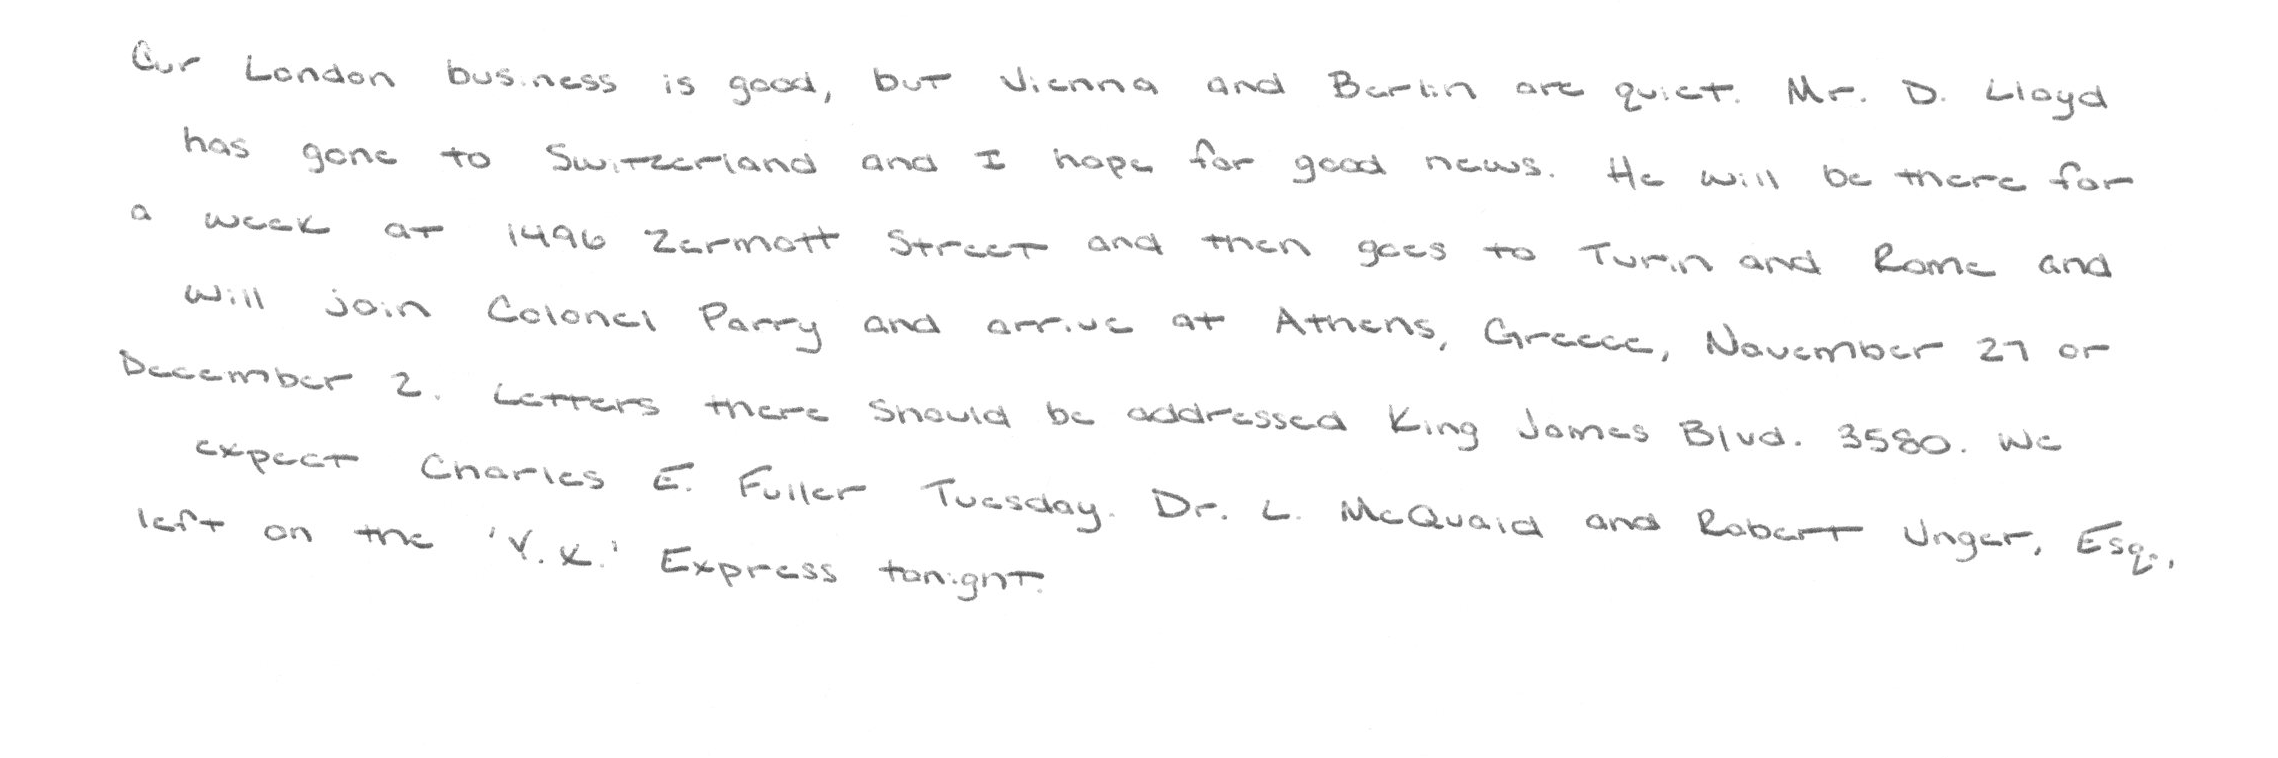 Our London business is good, but Vienna and Berlin are quiet. Mr. D. Lloyd
has gone to Switzerland and I hope for good news. He will be there for
a week at 1496 Zermott Street and then goes to Turin and Rome and
will join Colonel Parry and arrive at Athens, Greece, November 27 or
December 2. Letters there should be addressed King James Blvd. 3580. We
expect Charles E. Fuller Tuesday. Dr. L. McQuaid and Robert Unger, Esq.,
left on the 'Y.X.' Express tonight.